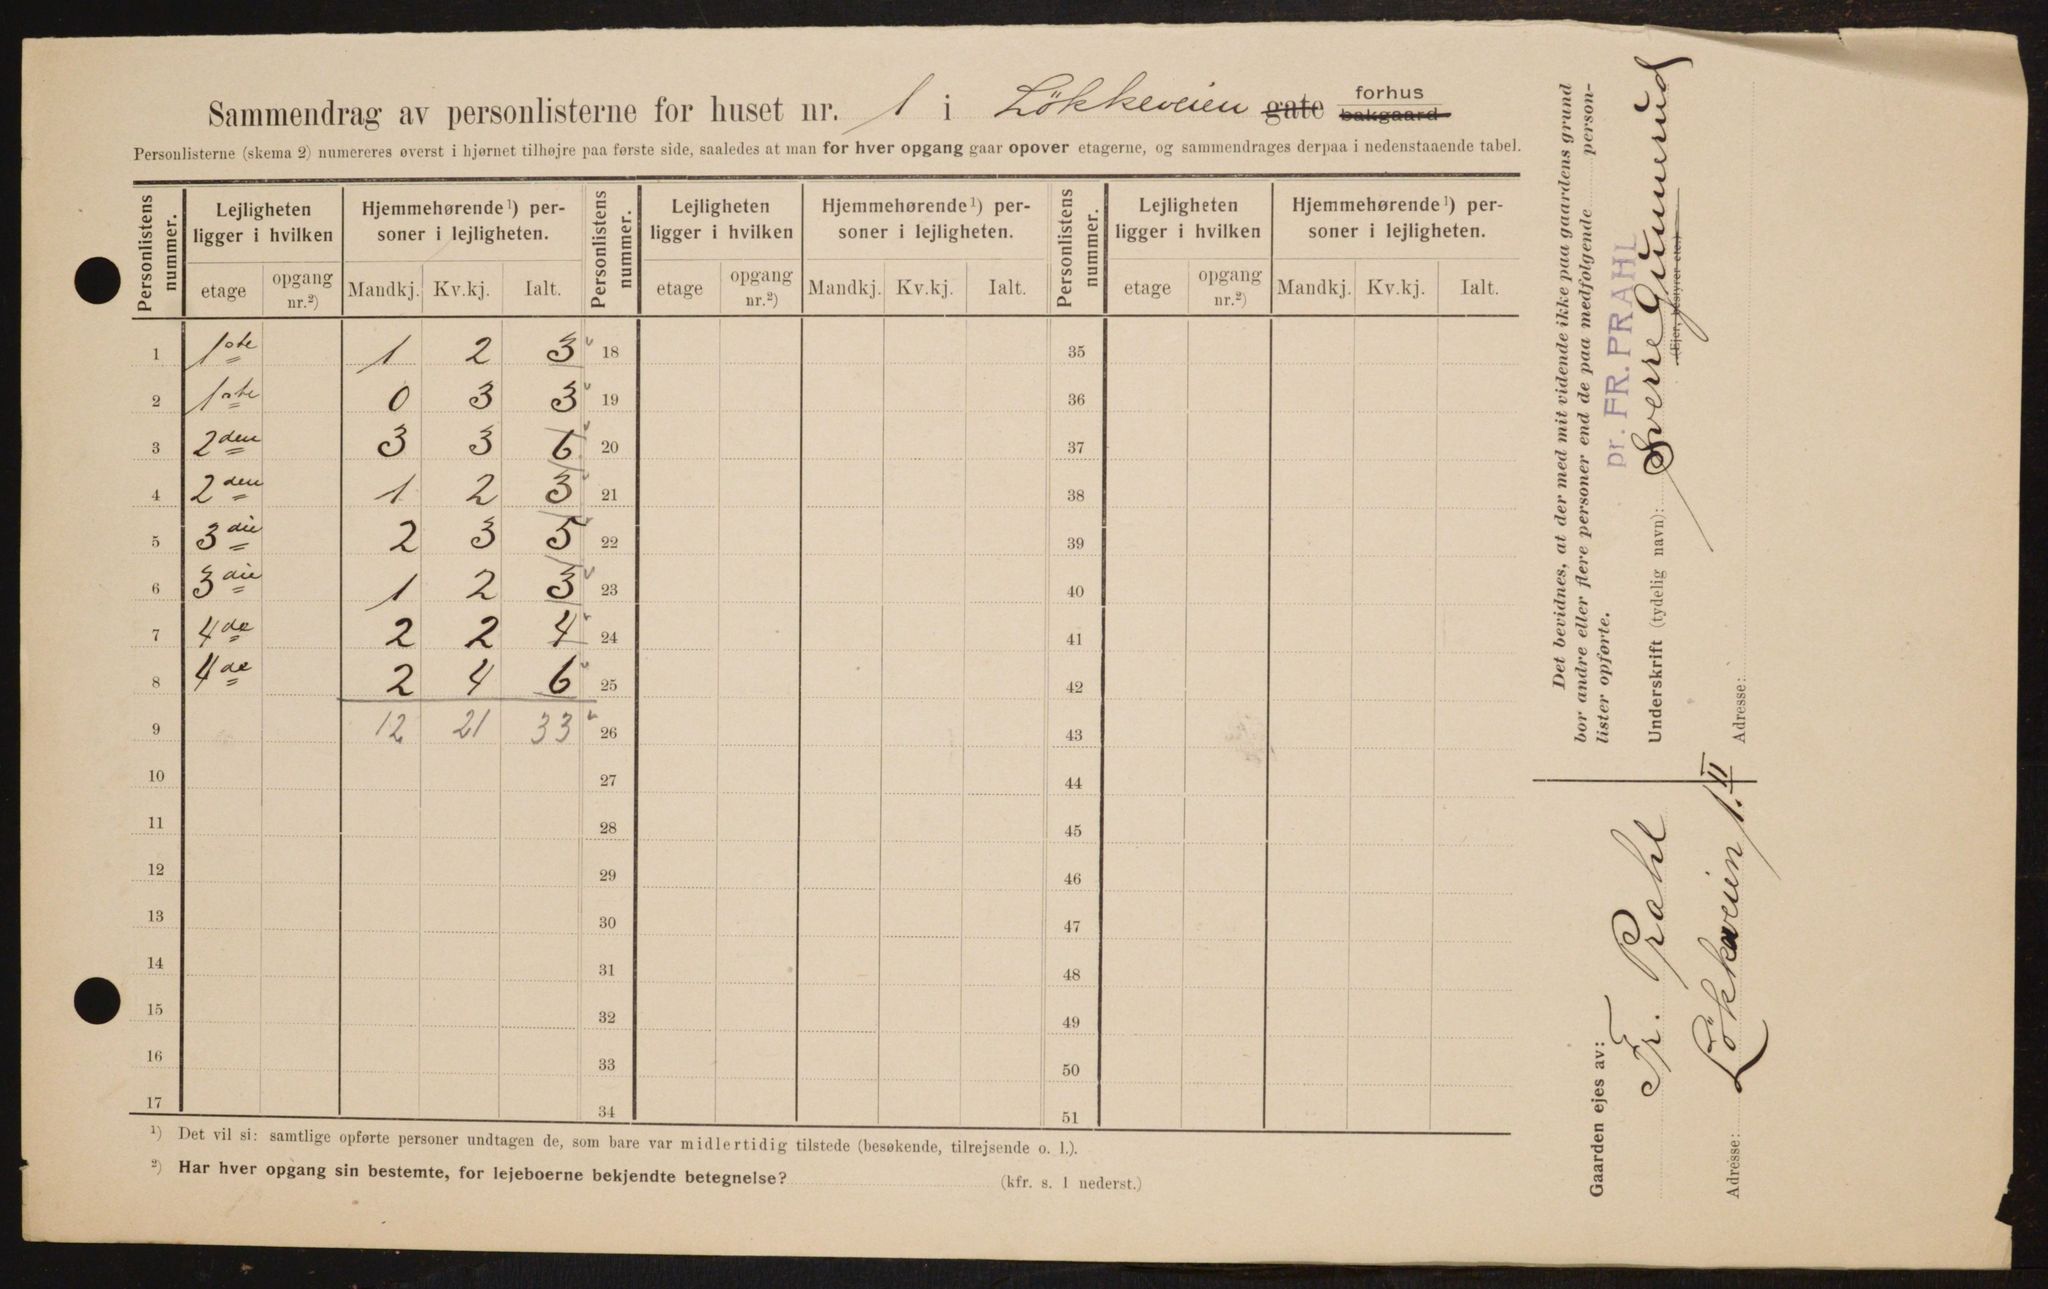 Sammendrag av personlisterne for huset nr. 1 i Lökkeveien gate forhus bakgaard
Personlisterne (skema 2) numereres øverst i hjørnet tilhøjre paa første side, saaledes at man for hver opgang gaar opover etagerne, og sammendrages derpaa i nedenstaaende tabel.
Personlistens nummer. Lejligheten ligger i hvilken Hjemmehørende ¹) personer i lejligheten. Personlistens nummer. Lejligheten ligger i hvilken Hjemmehørende ¹) personer i lejligheten. Personlistens nummer. Lejligheten ligger i hvilken Hjemmehørende ¹) personer i lejligheten.
etage opgang nr.²) Mandkj. Kv.kj. Ialt. etage opgang nr.²) Mandkj. Kv.kj. Ialt. etage opgang nr.²) Mandkj. Kv.kj. Ialt.
1 1ste 1 2 3 18 35
2 1ste 0 3 3 19 36
3 2den 3 3 6 20 37
4 2den 1 2 3 21 38
5 3die 2 3 5 22 39
6 3die 1 2 3 23 40
7 4de 2 2 4 24 41
8 4de 2 4 6 25 42
9 12 21 33 26 43
10 27 44
11 28 45
12 29 46
13 30 47
14 31 48
15 32 49
16 33 50
17 34 51
¹) Det vil si: samtlige opførte personer undtagen de, som bare var midlertidig tilstede (besøkende, tilrejsende o. l.).
²) Har hver opgang sin bestemte, for lejeboerne bekjendte betegnelse? (kfr. s. 1 nederst.)
Det bevidnes, at der med mit vidende ikke paa gaardens grund
bor andre eller flere personer end de paa medfølgende person-
lister opførte.
pr. FR. PRAHL
Underskrift (tydelig navn): Sverre Gumerud
(Ejer, bestyrer etc.)
Adresse:
Gaarden ejes av:
Fr. Prahl
Adresse: Lökkeveien 1. II